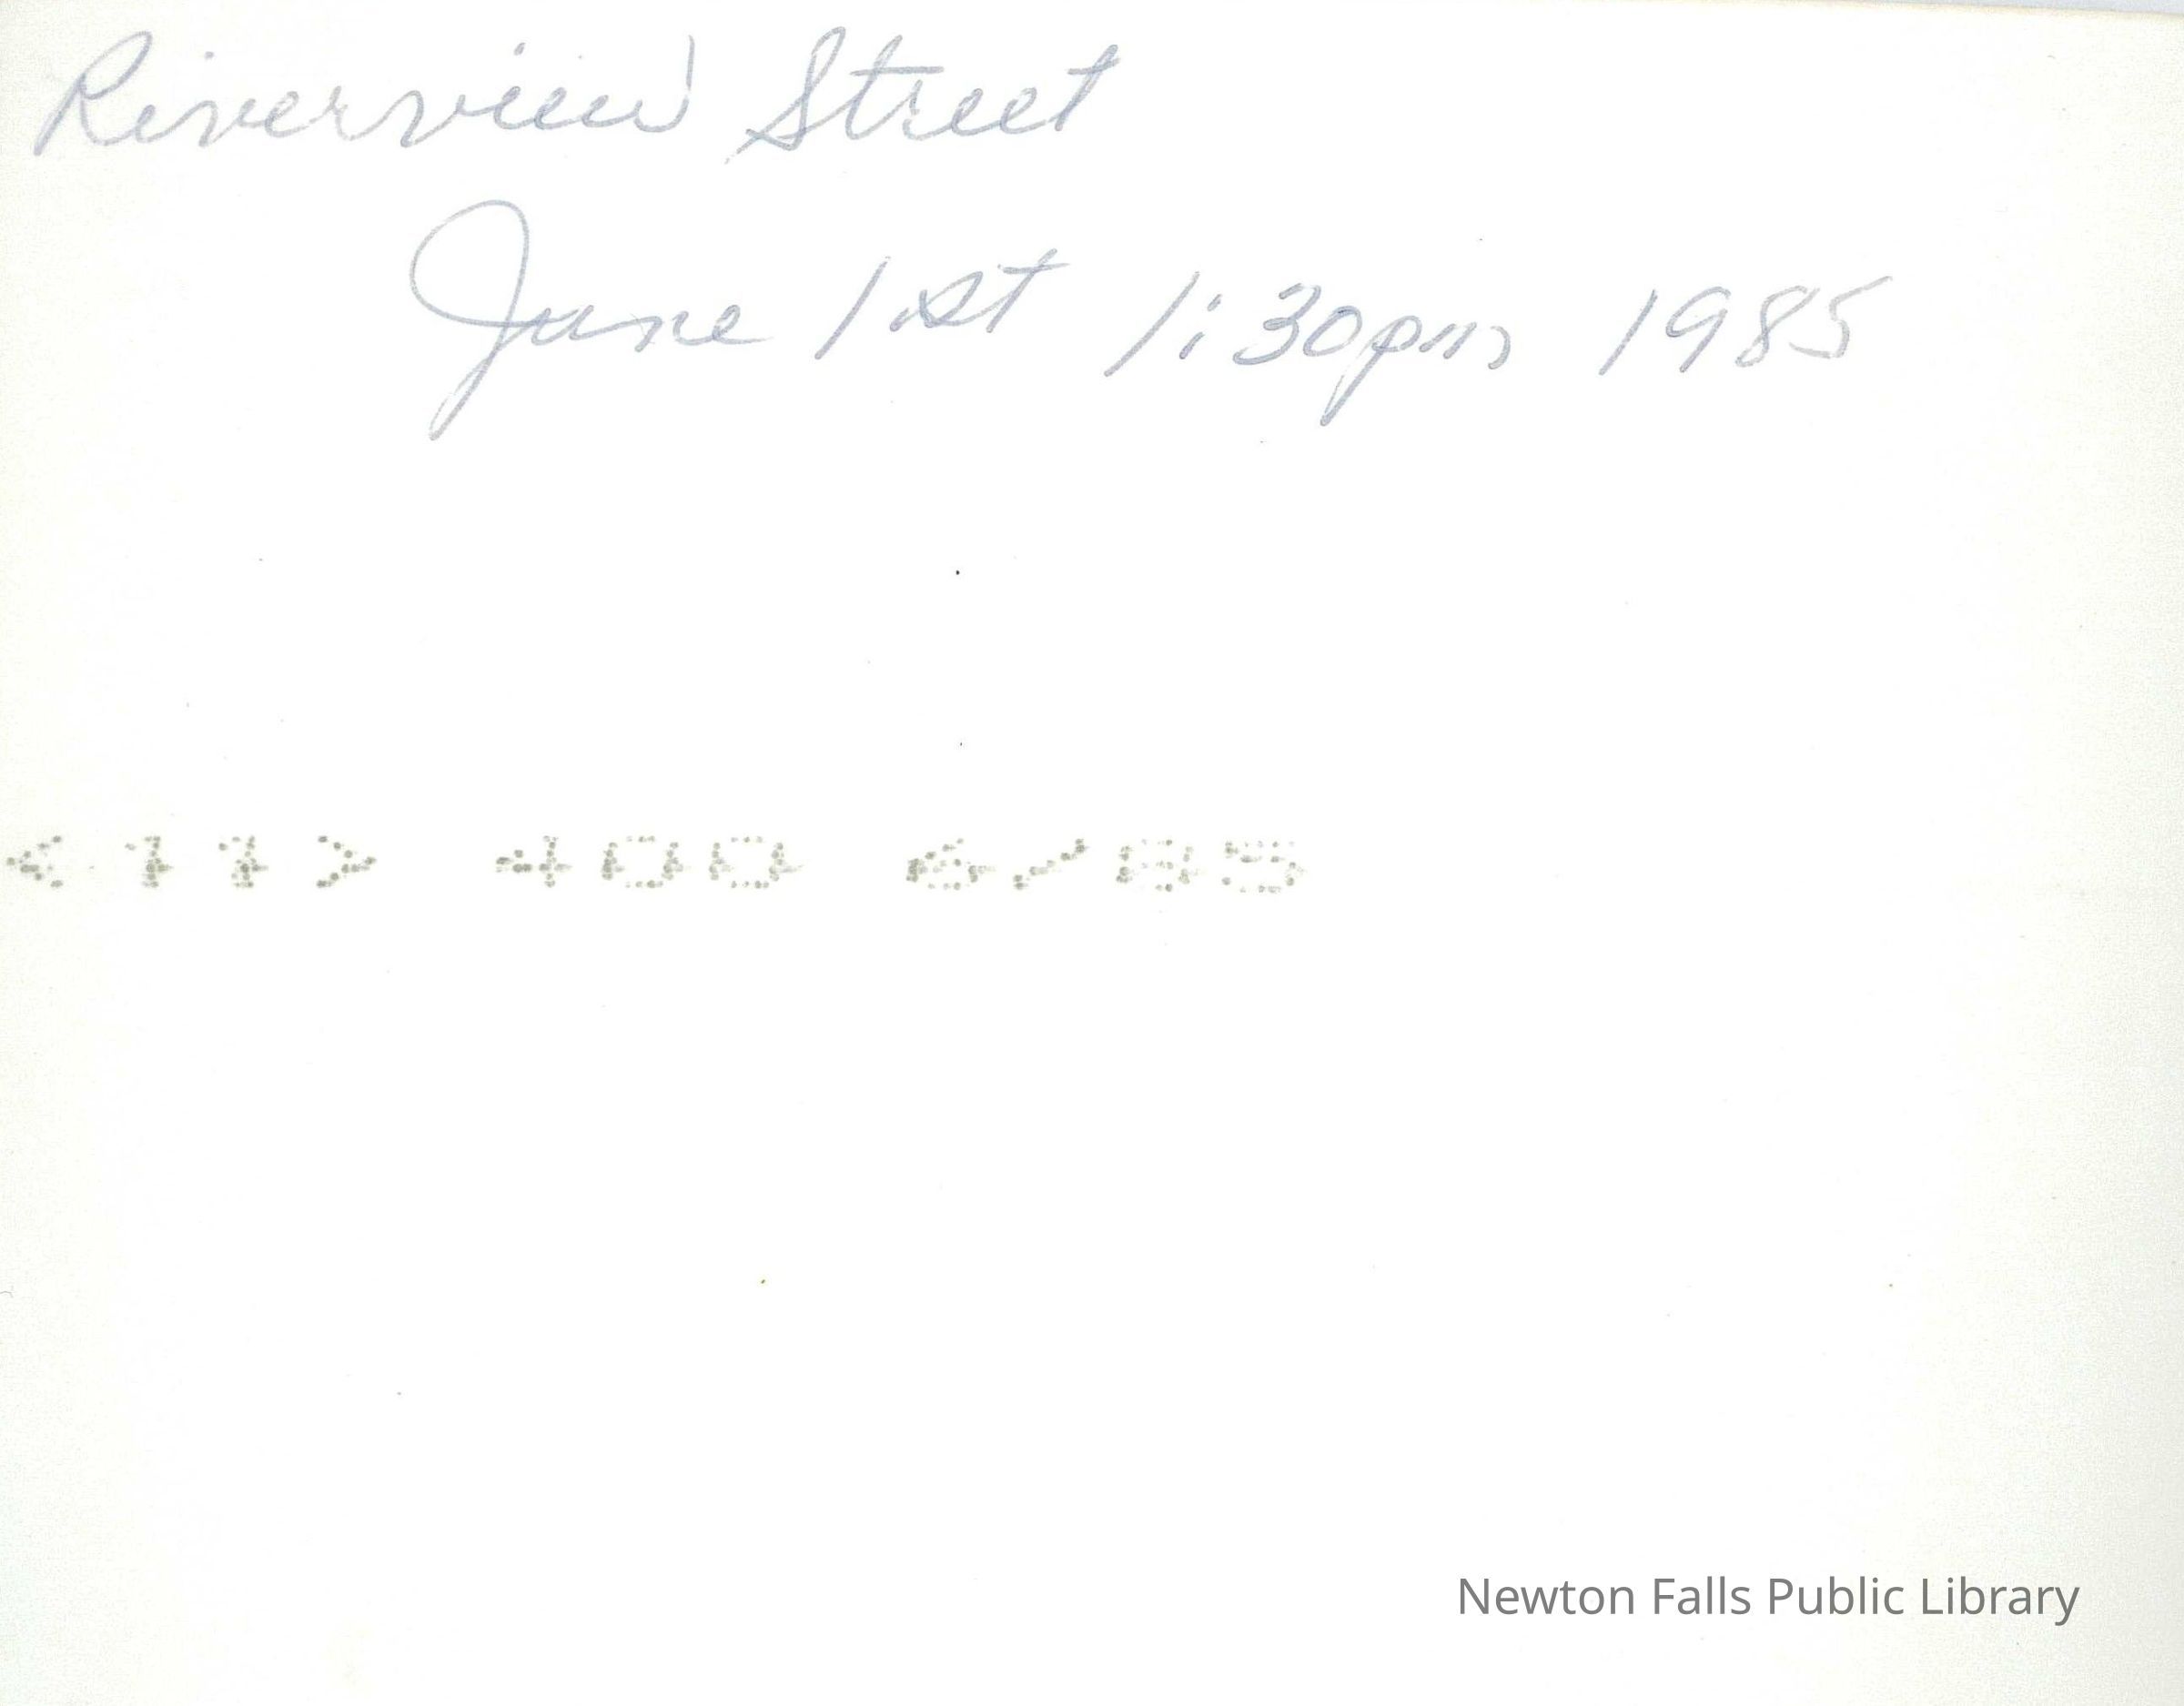 Riverview Street
June 1st 1:30pm 1985
<11> 400 6/85
Newton Falls Public Library